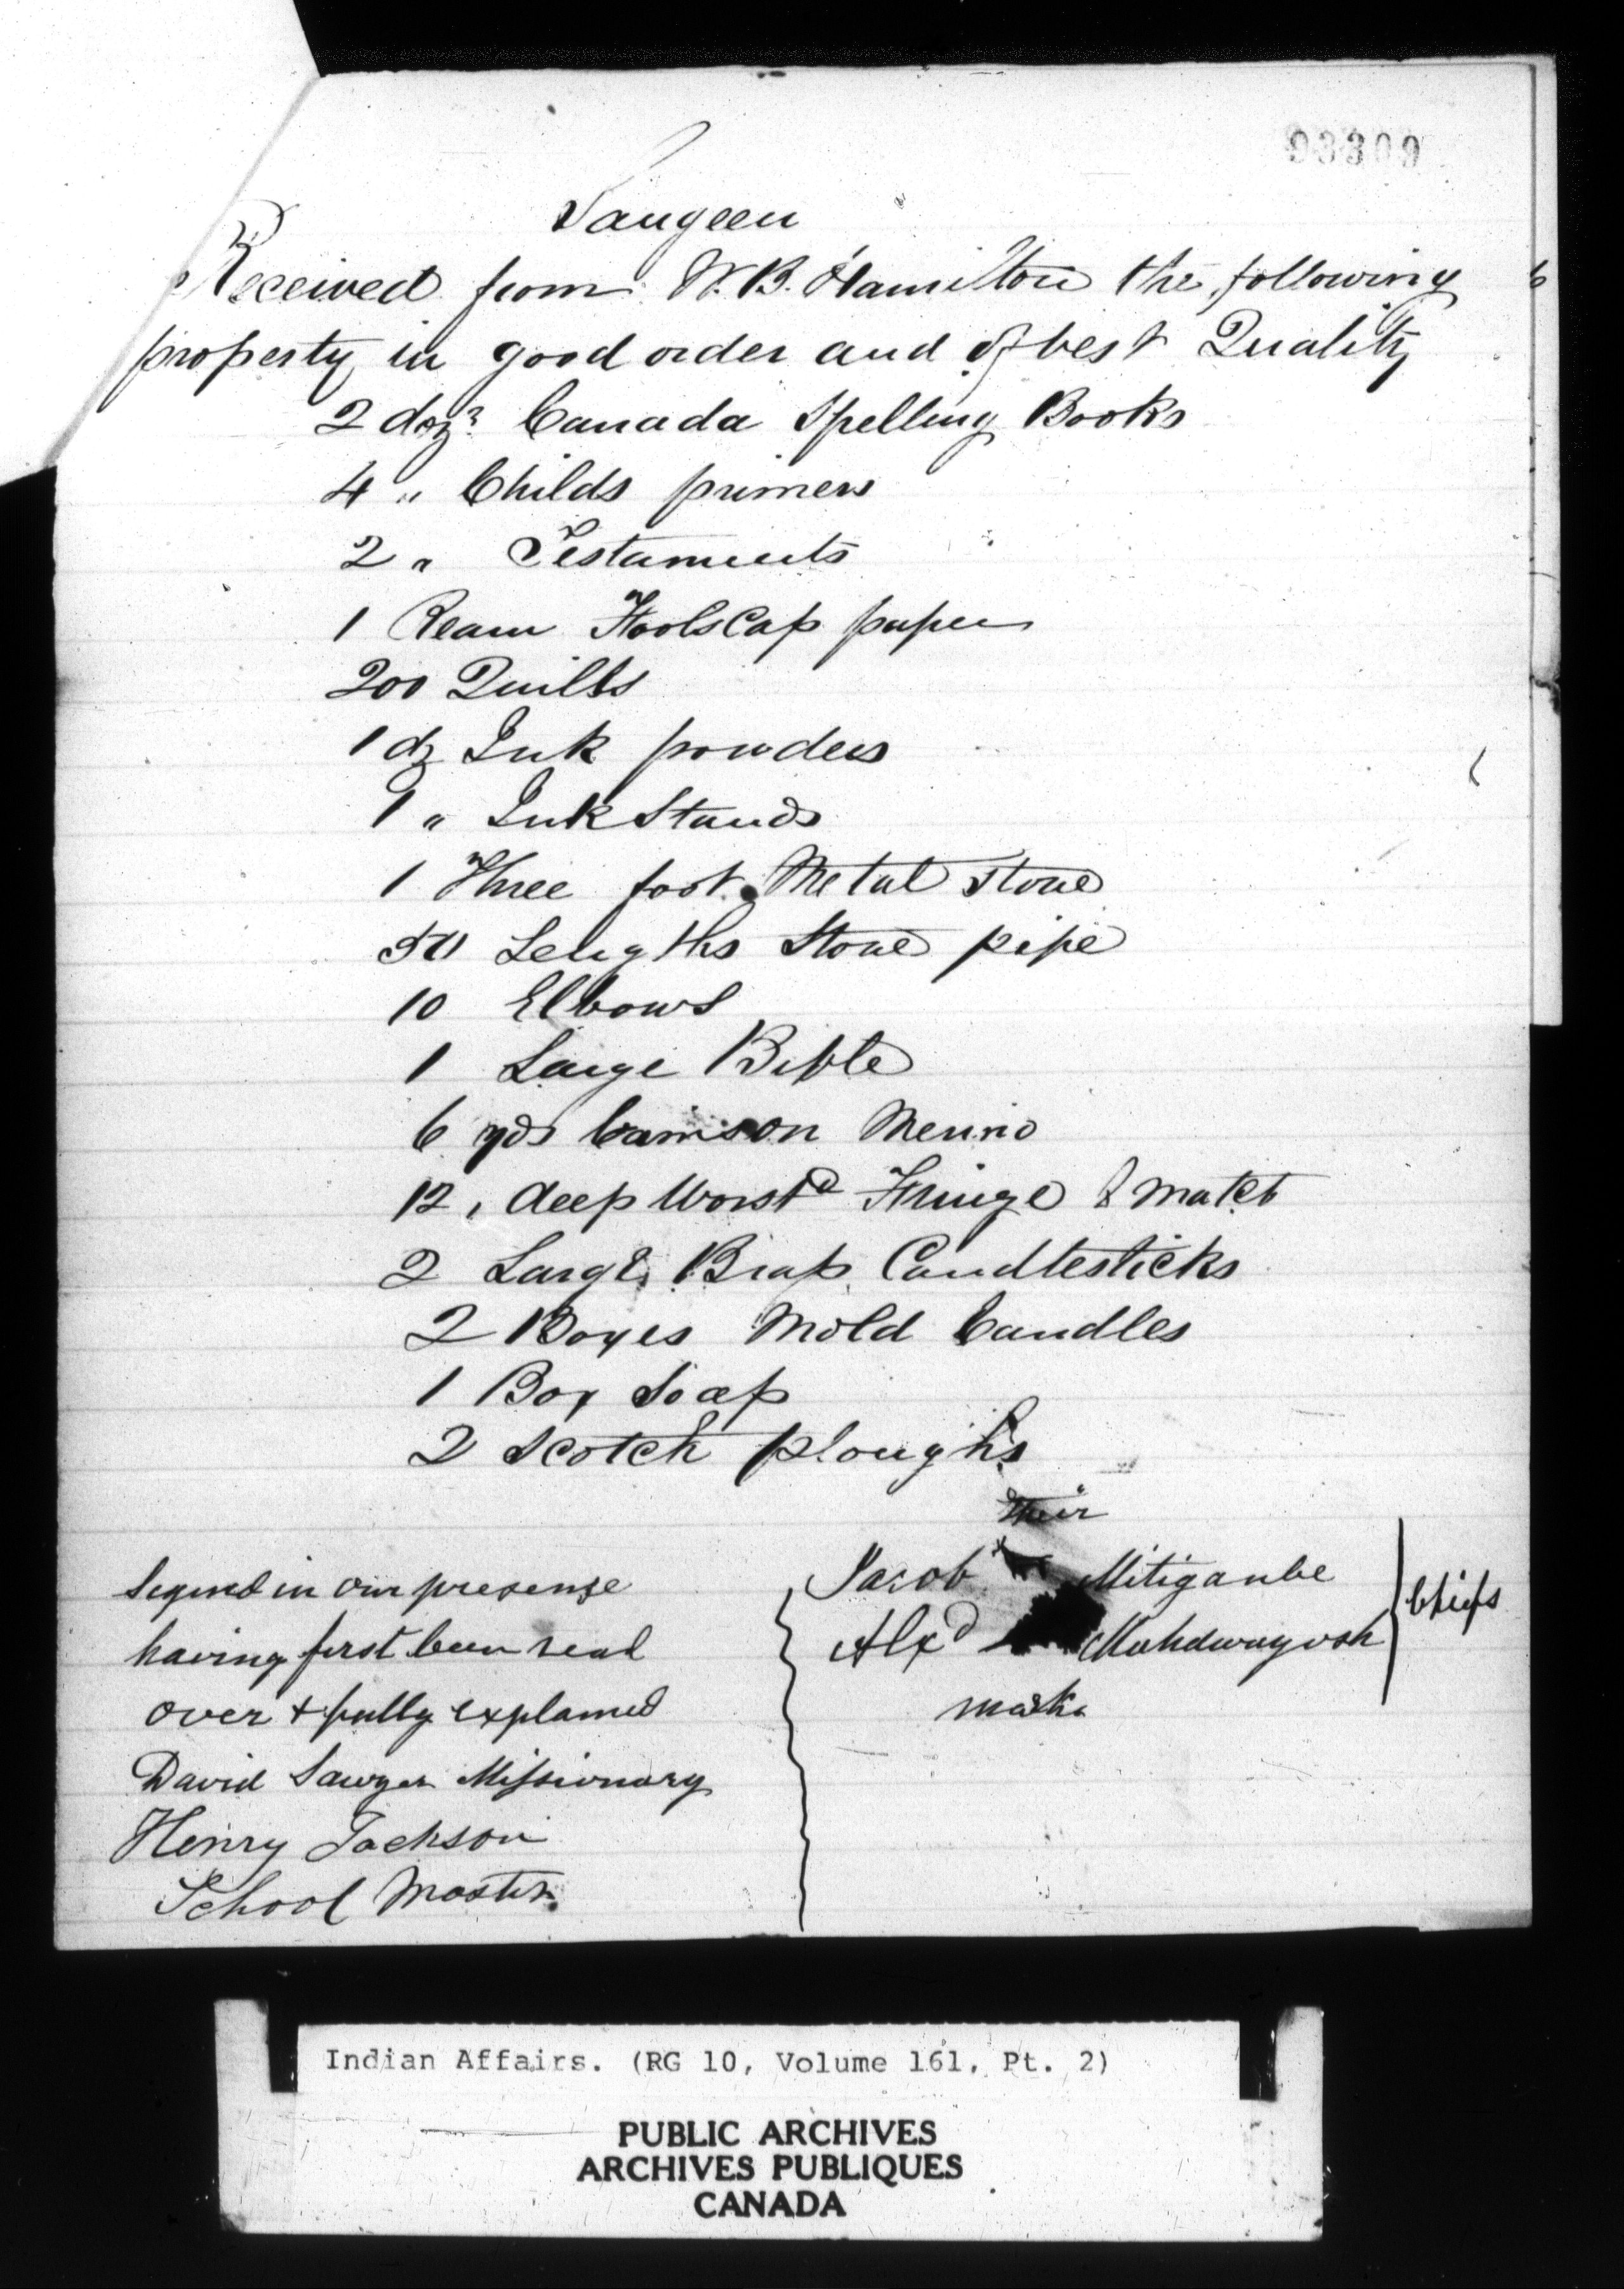 93309
Saugeen
Received from W.B. Hamilton the following
property in good order and of best Quality
2 doz? Canada Spelling Books
4 " Childs primers
2 " Testaments
1 Ream FoolsCap paper
200 Quills
1 dz Ink powders
1 " Ink Stands
1 Three foot Metal Stove
50 Lengths Stove pipe
10 Elbows
1 Large Bible
6 yds Crimson Merino
12 " deep Worstd Fringe to match
2 Large Brass Candlesticks
2 Boxes Mold Candles
1 Box Soap
2 Scotch ploughs
their
Jacob x Mitiganbe
Alxd Mahdwayosh
Chiefs
marks
Signed in our presense
having first been read
over + fully explained
David Sawyer Missionary
Henry Jackson
School Master
Indian Affairs. (RG 10, Volume 161, Pt. 2)
PUBLIC ARCHIVES
ARCHIVES PUBLIQUES
CANADA